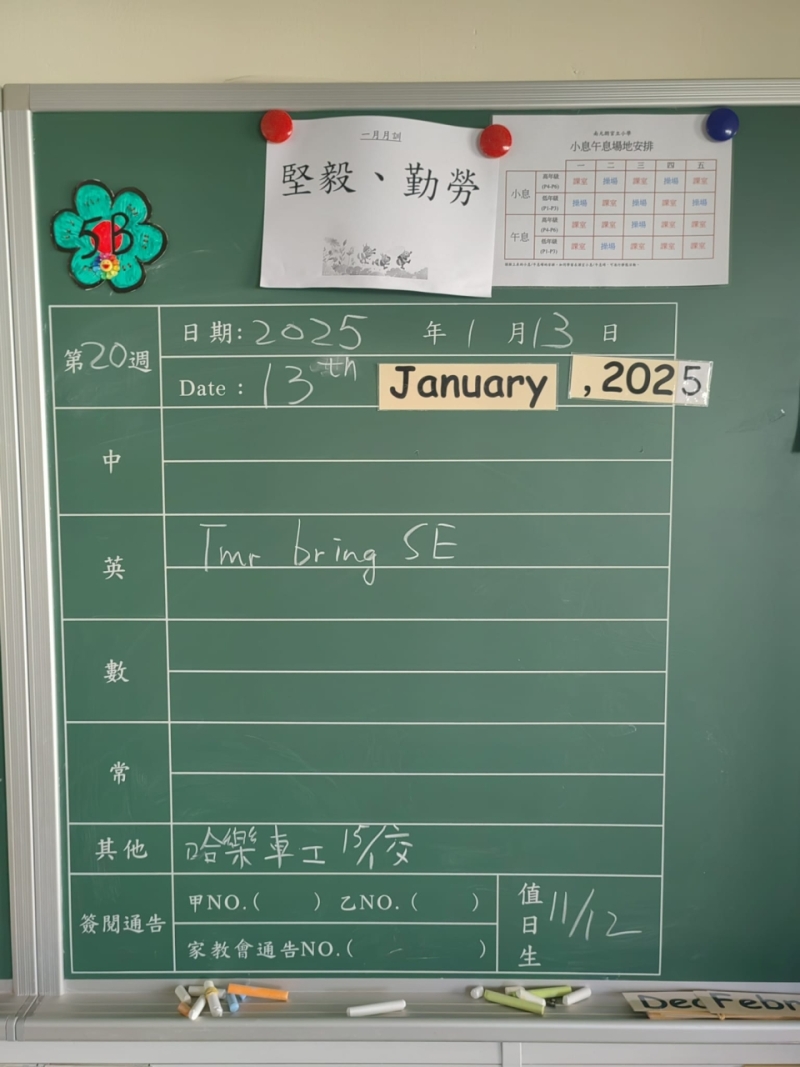 一月月訓
堅毅、勤勞
小息午息場地安排
一 二 三 四 五
小息
高年級 (P4-P6) 課室 操場 課室 操場 課室
低年級 (P1-P3) 操場 課室 操場 課室 操場
午息
高年級 (P4-P6) 課室 課室 操場 課室 課室
低年級 (P1-P3) 課室 操場 課室 課室 課室
5B
第20週
日期: 2025 年 1 月 13 日
Date : 13th January , 2025
中
英 Tmr bring SE
數
常
其他 哈樂車工 15/1交
簽閱通告
甲NO.( ) 乙NO.( )
家教會通告NO.( )
值日生 11/12
Dec Febr